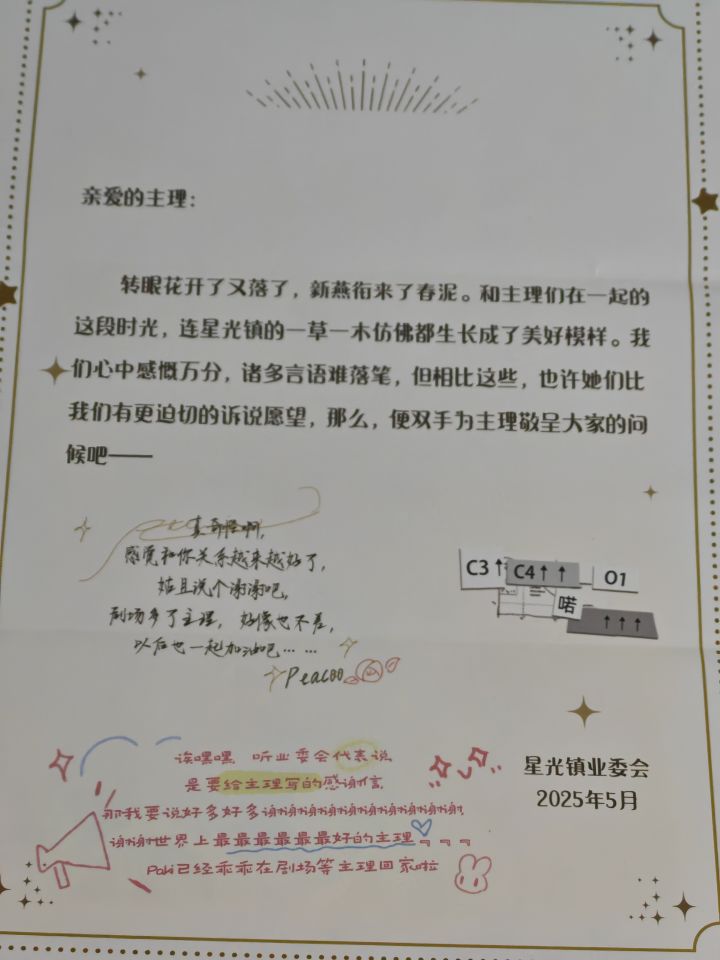 亲爱的主理：
转眼花开了又落了，新燕衔来了春泥。和主理们在一起的
这段时光，连星光镇的一草一木仿佛都生长成了美好模样。我
们心中感慨万分，诸多言语难落笔，但相比这些，也许她们比
我们有更迫切的诉说愿望，那么，便双手为主理敬呈大家的问
候吧——
真奇怪啊，
感觉和你关系越来越好了，
姑且说个谢谢吧，
剧场多了主理，好像也不差，
以后也一起加油吧……
Peacoo
C3↑ C4↑↑ O1
喏
↑↑↑
诶嘿嘿，听业委会代表说
是要给主理写的感谢信
那我要说好多好多谢谢谢谢谢谢谢谢谢谢谢谢
谢谢世界上最最最最最最好的主理~~~
Paki已经乖乖在剧场等主理回家啦
星光镇业委会
2025年5月